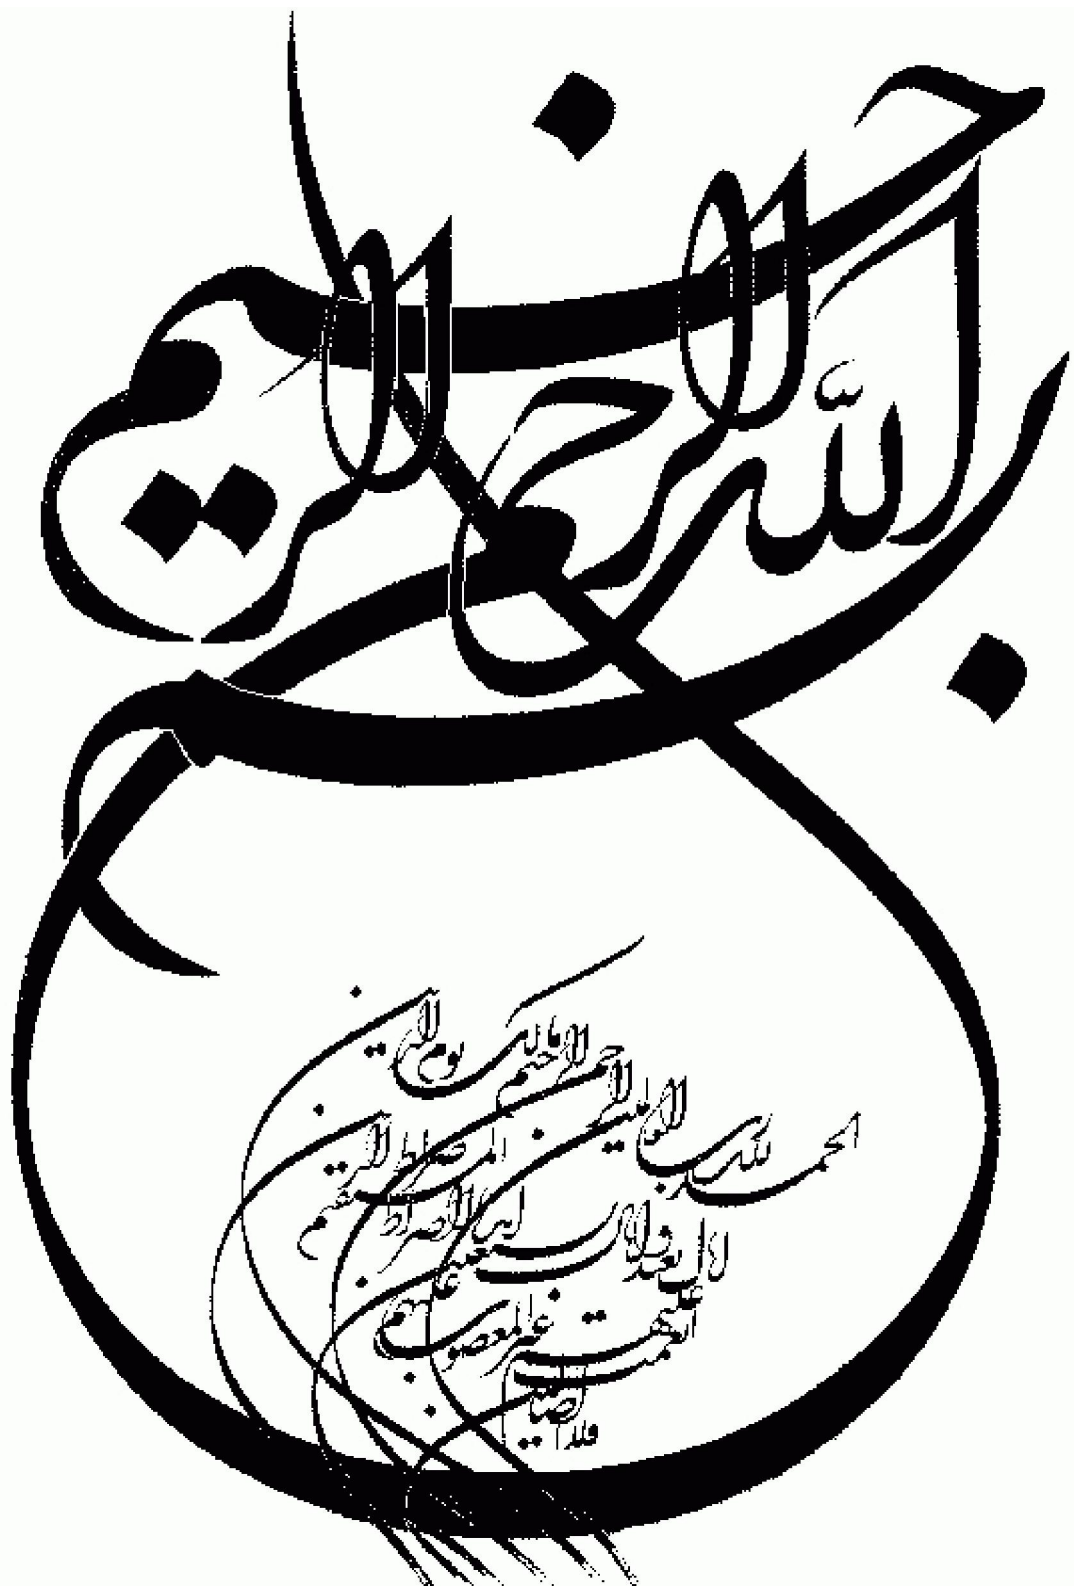 بسم الله الرحمن الرحيم
الحمد لله رب العالمين
الرحمن الرحيم
مالك يوم الدين
اهدنا الصراط المستقيم
صراط الذين
انعمت عليهم
غير المغضوب عليهم
ولا الضالين